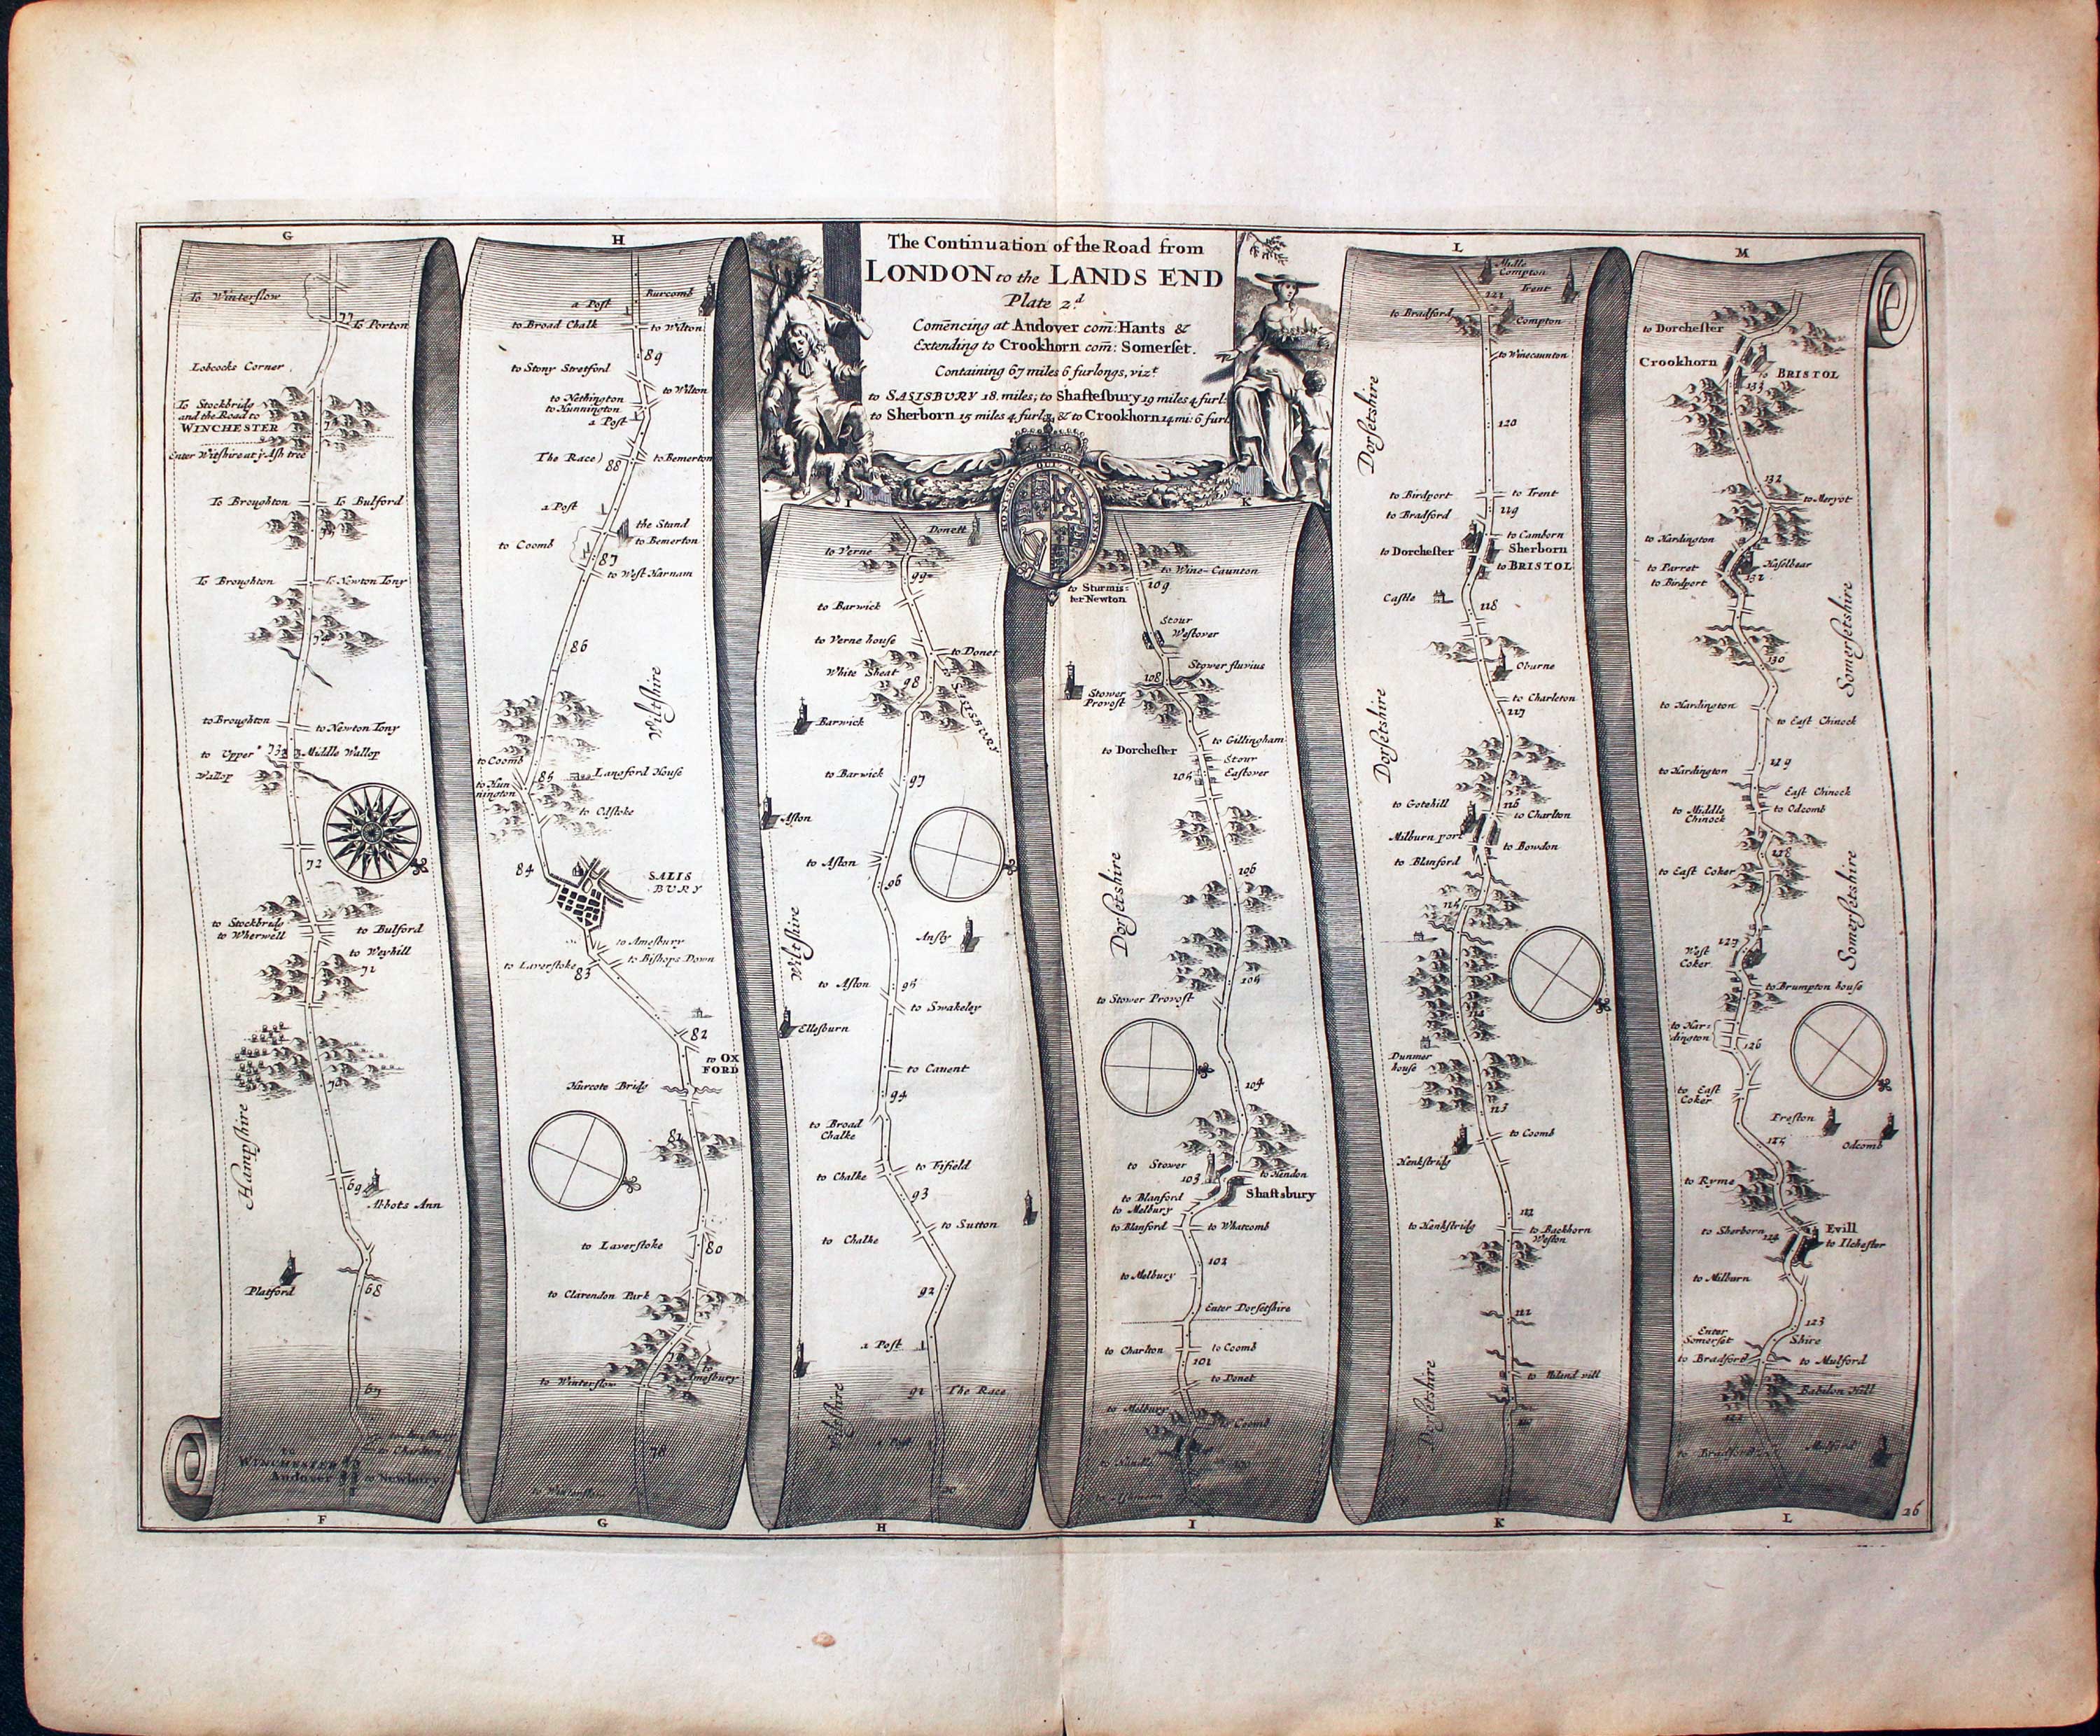 The Continuation of the Road from
LONDON to the LANDS END
Plate 2.d
Com̄encing at Andover com̄: Hants &
Extending to Crookhorn com̄: Somerſet.
Containing 67 miles 6 furlongs, vizt
to SALISBURY 18. miles; to Shafteſbury 19 miles 4 furl:
to Sherborn 15 miles 4 furl: & to Crookhorn 14 mi: 6 furl
G
To Winterſlow
77
To Porton
Lobcocks Corner
To Stockbridg
and the Road to
WINCHESTER
Enter Wiltſhire at ye Aſh tree
To Broughton
To Bulford
To Broughton
To Newton Tony
74
to Broughton
to Newton Tony
to Upper
73
Middle Wallop
Wallop
72
to Stockbridg
to Wherwell
to Bulford
to Weyhill
71
70
Hampſhire
69
Abbots Ann
Platford
68
67
to Charlton
WINCHESTER
Andover
to Newbury
F
H
Burcomb
a Poſt
to Broad Chalk
to Wilton
89
to Stony Stretford
to Wilton
to Nethington
to Hunnington
a Poſt
The Race
88
to Bemerton
a Poſt
the Stand
to Bemerton
to Coomb
87
to Weſt Harnam
86
Wiltſhire
to Coomb
85
Langford Houſe
to Hun
nington
to Odſtoke
84
SALIS
BURY
to Ameſbury
to Laverſtoke
to Biſhops Down
83
82
to OX
FORD
Hurcote Bridg
81
to Laverſtoke
80
to Clarendon Park
to
Ameſbury
to Winterſlow
78
G
I
Donett
to Verne
99
to Barwick
to Verne houſe
to Donet
White Sheat
98
SALISBURY
Barwick
to Barwick
97
Aſton
to Aſton
96
Anſty
Wiltſhire
to Aſton
95
to Swakeley
Elleſburn
to Cauent
94
to Broad
Chalke
to Chalke
to Fifield
93
to Sutton
to Chalke
92
a Poſt
91
The Race
Wiltſhire
90
H
HONI SOIT QUI MAL Y PENSE
K
to Wine-Caunton
109
to Sturmiſ-
ter Newton
Stour
Weſtover
Stower fluvius
108
Stower
Provoſt
to Gillingham
to Dorcheſter
Stour
Eaſtover
106
Dorſetſhire
105
to Stower Provoſt
104
to Stower
103
to Hindon
Shaftsbury
to Blanford
to Melbury
to Blanford
to Whatcomb
102
to Melbury
Enter Dorſetſhire
to Charlton
to Coomb
101
to Donet
to Melbury
to Coomb
I
L
Midle
Compton
Trent
121
to Bradford
Compton
to Winecaunton
Dorſetſhire
120
to Birdport
to Trent
to Bradford
119
to Camborn
to Dorcheſter
Sherborn
to BRISTOL
Caſtle
118
Oburne
to Charleton
117
Dorſetſhire
to Gotehill
116
to Charlton
Milburn port
to Bowdon
to Blanford
115
Dunmer
houſe
113
to Coomb
Henkſtridg
112
to Henkſtridg
to Backhorn
Weſton
to Niland vill
Dorſetſhire
K
M
to Dorcheſter
Crookhorn
to BRISTOL
133
132
to Meryot
to Hardington
Haſelbear
to Parret
to Birdport
Somerſetſhire
130
to Hardington
to East Chinock
129
to Hardington
East Chinock
to Middle
Chinock
to Odcomb
128
to East Coker
Somerſetſhire
Weſt
Coker
to Brumpton houſe
to Har-
dington
126
to East
Coker
Preſton
125
Odcomb
to Ryme
to Sherborn
Evill
124
to Ilcheſter
to Milburn
123
Enter
Somerſet
Shire
to Bradford
to Mulford
Babilon Hill
to Bradford
Mulford
L
26